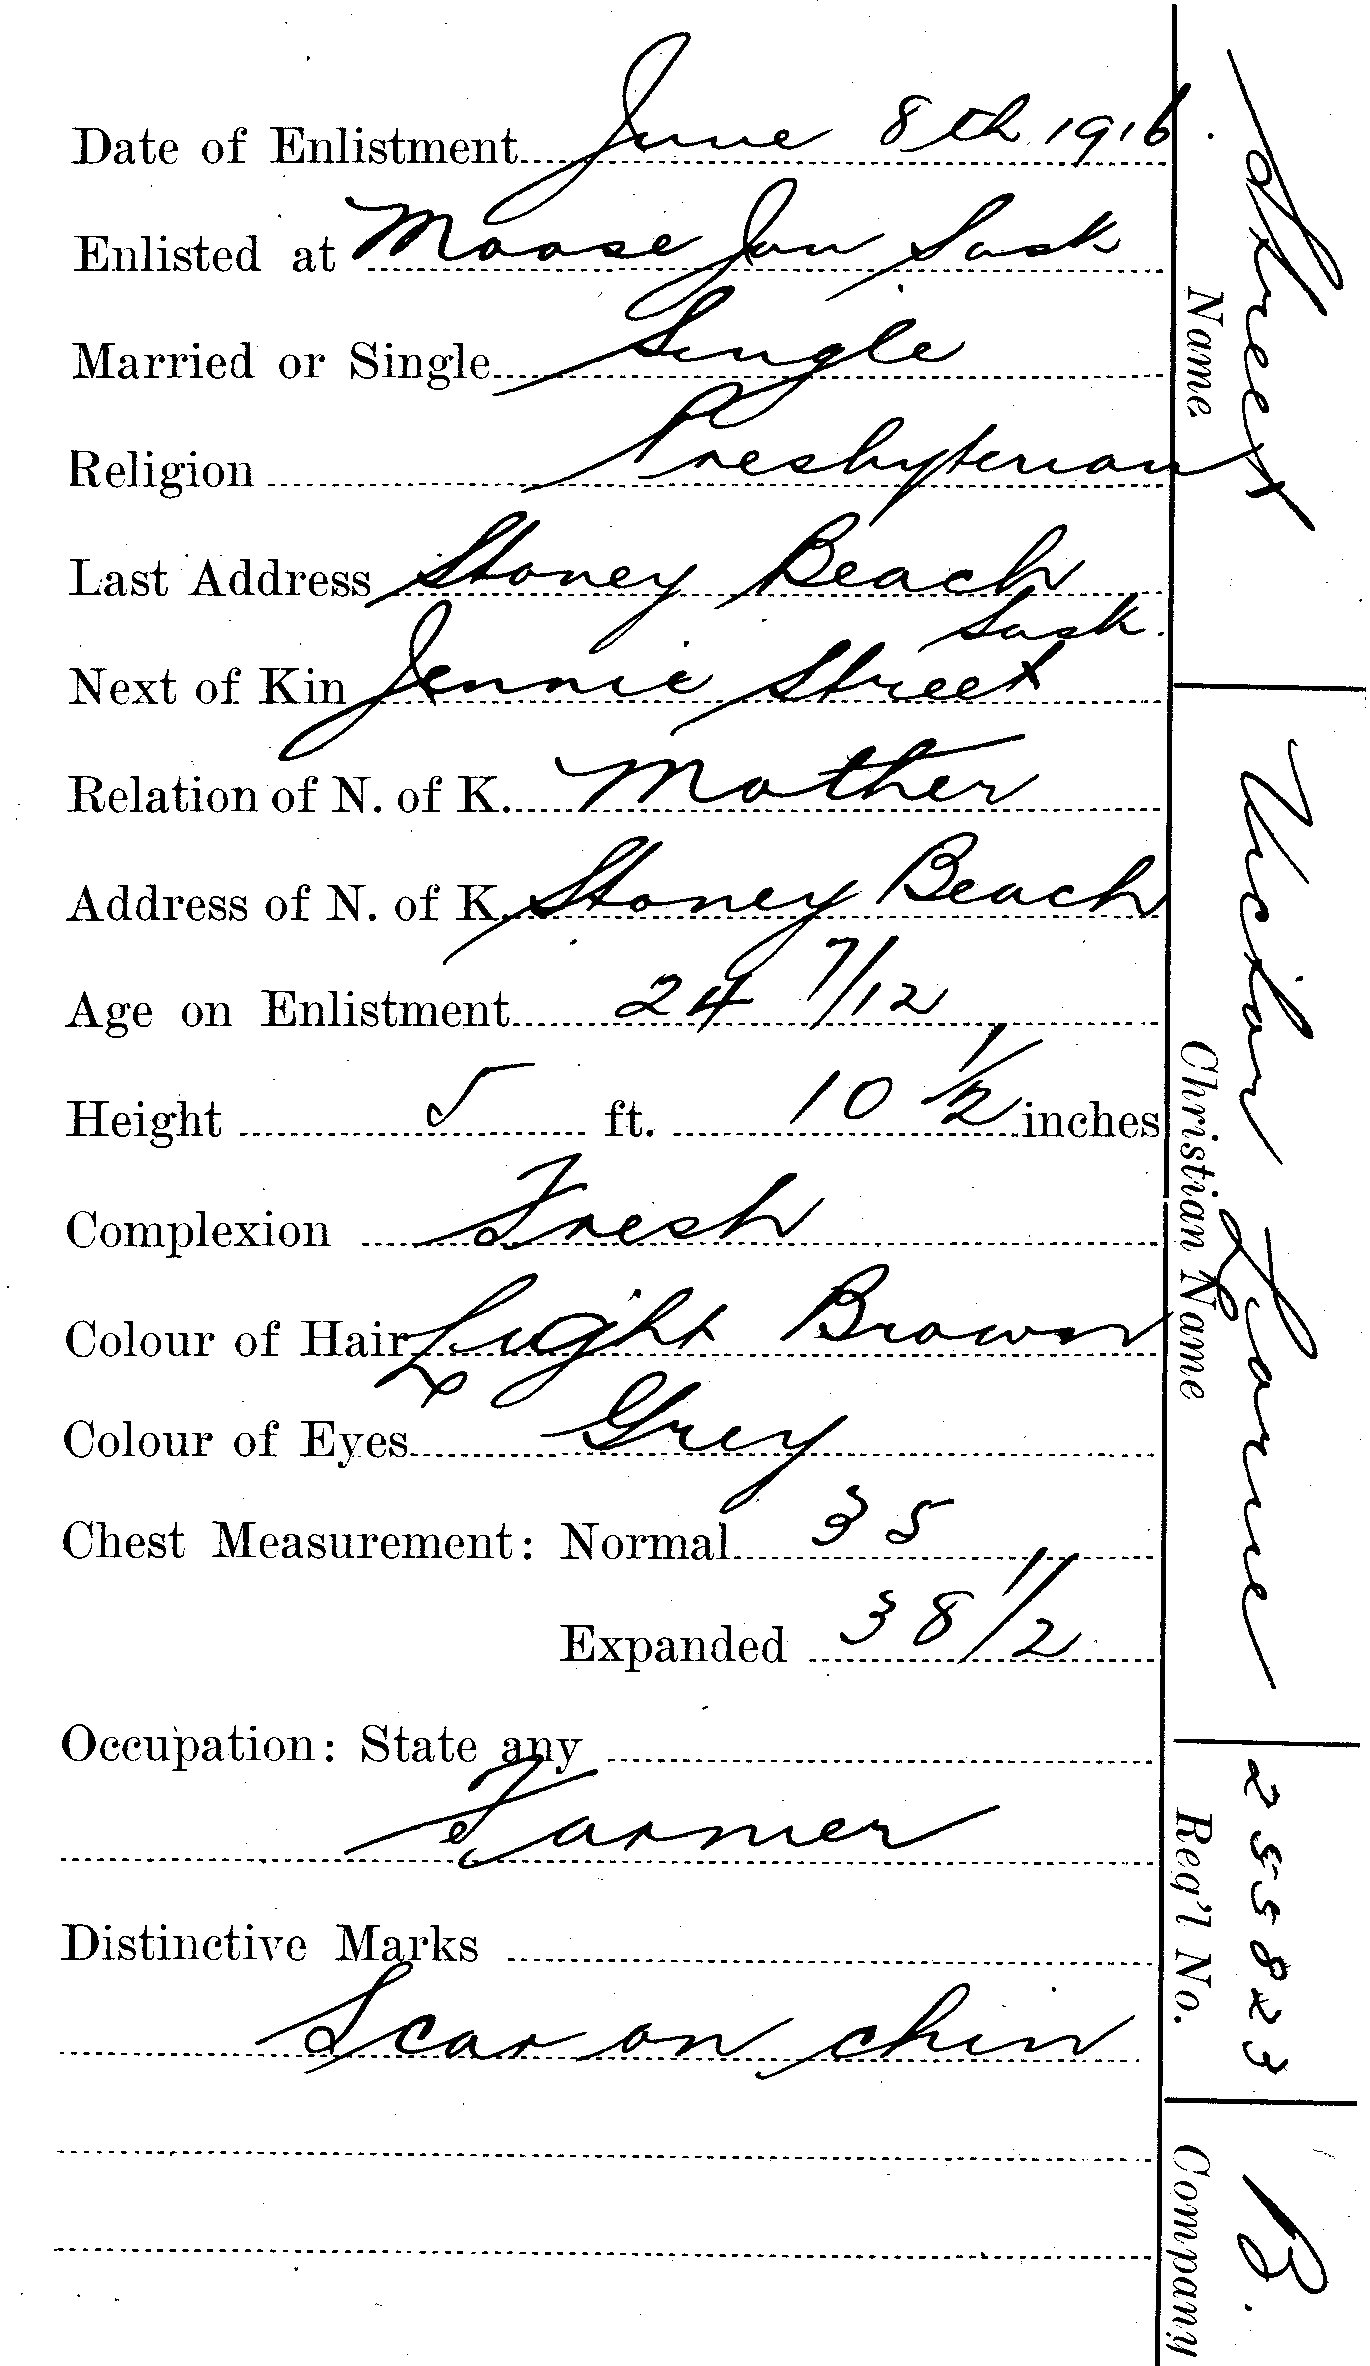 Date of Enlistment June 8th 1916.
Enlisted at Moose Jaw Sask
Married or Single Single
Religion Presbyterian
Last Address Stoney Beach
Sask.
Next of Kin Jennie Street
Relation of N. of K. Mother
Address of N. of K. Stoney Beach
Age on Enlistment 24 7/12
Height 5 ft. 10 1/2 inches
Complexion Fresh
Colour of Hair Light Brown
Colour of Eyes Grey
Chest Measurement: Normal 35
Expanded 38 1/2
Occupation: State any
Farmer
Distinctive Marks
Scar on chin
Street
Name
Victor Lorne
Christian Name
255823
Reg'l No.
B.
Company